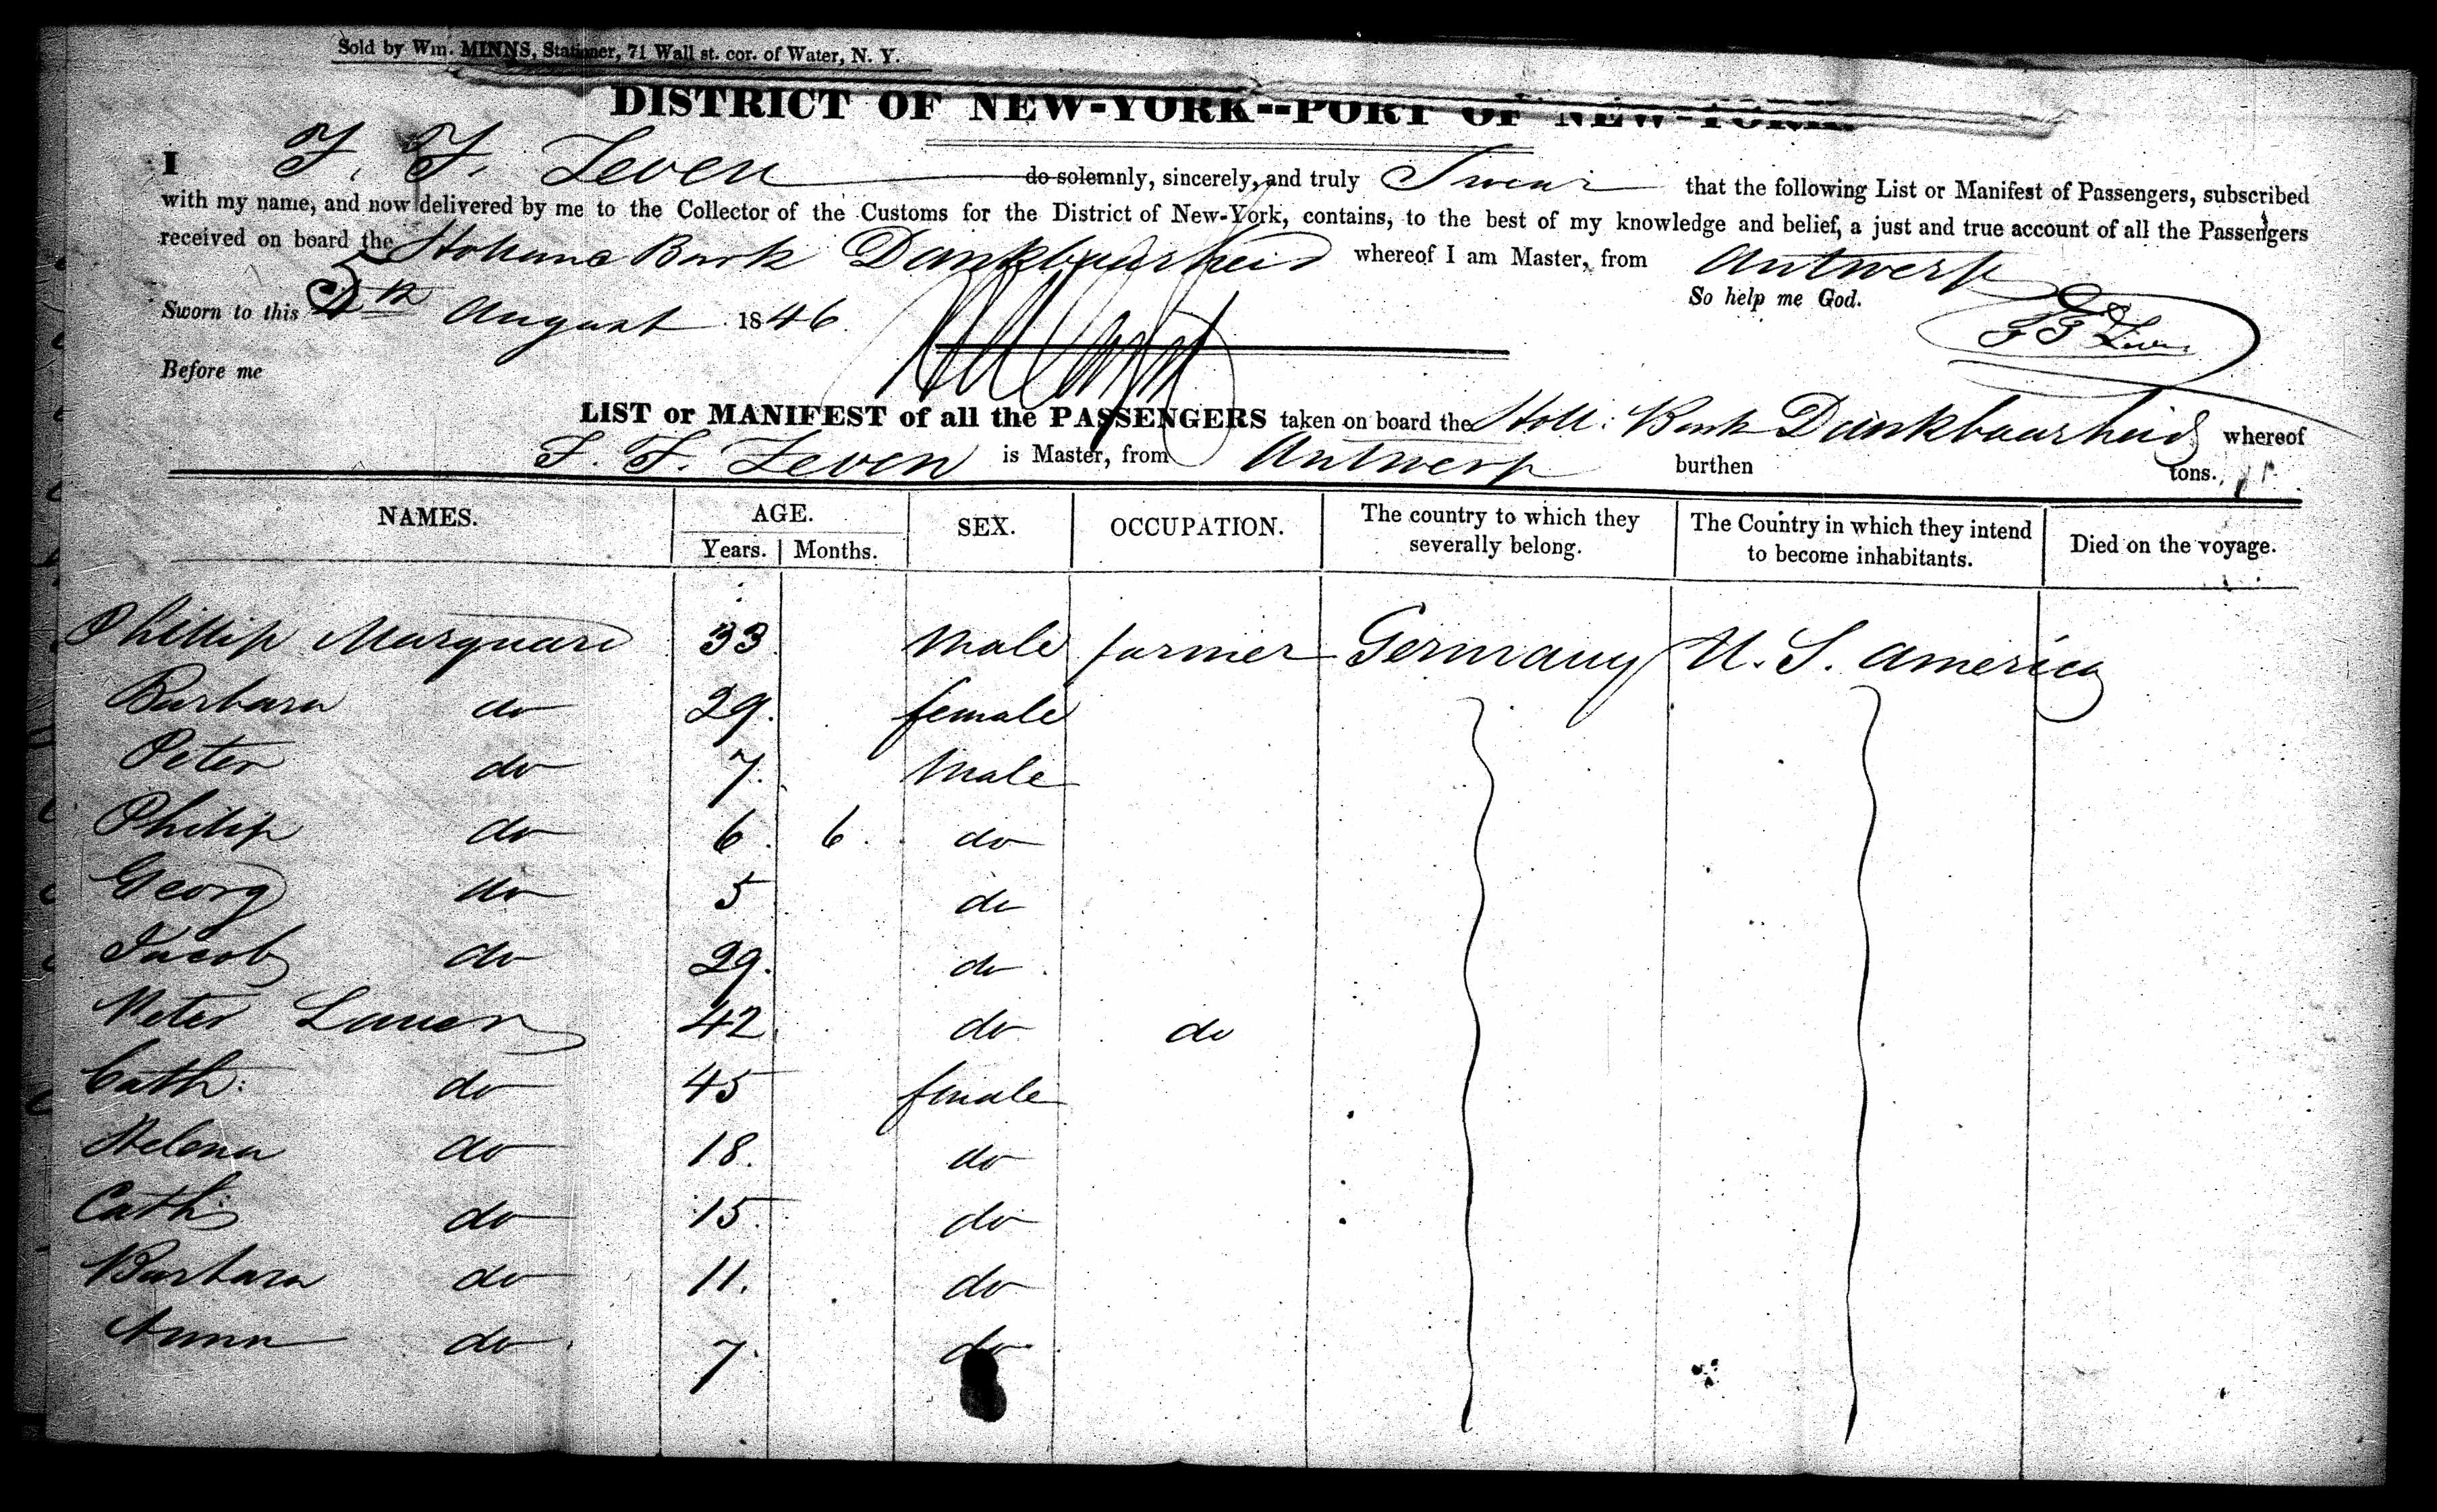 Sold by Wm. MINNS, Stationer, 71 Wall st. cor. of Water, N. Y.
DISTRICT OF NEW-YORK--PORT OF NEW-YORK.
I F. F. Zeven do solemnly, sincerely, and truly Swear that the following List or Manifest of Passengers, subscribed
with my name, and now delivered by me to the Collector of the Customs for the District of New-York, contains, to the best of my knowledge and belief, a just and true account of all the Passengers
received on board the Bark Dankbaarheid whereof I am Master, from Antwerp
Sworn to this August 1846. So help me God.
Before me
LIST or MANIFEST of all the PASSENGERS taken on board the Holl: Bark Dankbaarheid whereof
F. F. Zeven is Master, from Antwerp burthen tons.
NAMES. AGE. SEX. OCCUPATION. The country to which they severally belong. The Country in which they intend to become inhabitants. Died on the voyage.
Years. Months.
Phillip Marquard 33 Male farmer Germany U. S. America
Barbara do 29. female
Peter do 7. Male
Philip do 6. 6. do
Georg do 5 do
Jacob do 29. do
Peter Lauer 42 do do
Cath: do 45 female
Helena do 18. do
Cath: do 15. do
Barbara do 11. do
Anna do. 7. do